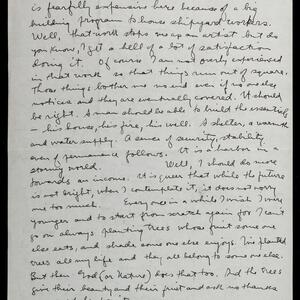 is fearfully expensive here because of a big
building program to house shipyard workers.
Well, that work stops me up an artist but do
you know, I get a hell of a lot of satisfaction
doing it. Of course I am not overly experienced
in that work so that things run out of square.
Those things bother me no end even if no one else
notices and they are eventually covered. It should
be right. A man should be able to build the essentials
- his house, his fire, his well. A shelter, a warmth
and water supply. A sense of security, stability,
even of permanence follows. It is a harbor in a
stormy world. Well, I should do more
towards an income. It is queer that while the future
is not bright, when I contemplate it, it does not worry
me too much. Every once in a while I wish I were
younger and to start from scratch again for I can't
go on always planting trees whose fruit some one
else eats, and shade some one else enjoys. I've planted
trees all my life and they all belong to some one else.
But then God (or Nature) does that too. And the trees
give their beauty and their fruit and ask no thanks